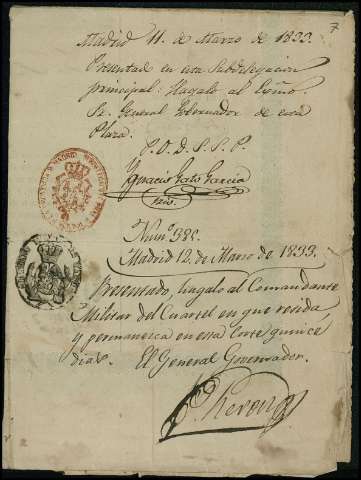 7
Madrid 11. de Marzo de 1833.
Presentado en esta Subdelegacion
principal: hagalo al Exmo.
Sr. General Gobernador de esta
Plaza.
P. O. D. S. S. P.
Ygnacio Gato Garcia
Num.º 385.
Madrid 12. de Marzo de 1833.
Presentado, hagalo al Comandante
Militar del Cuartel en que resida,
y permanezca en esta Corte quince
dias. El General Governador.